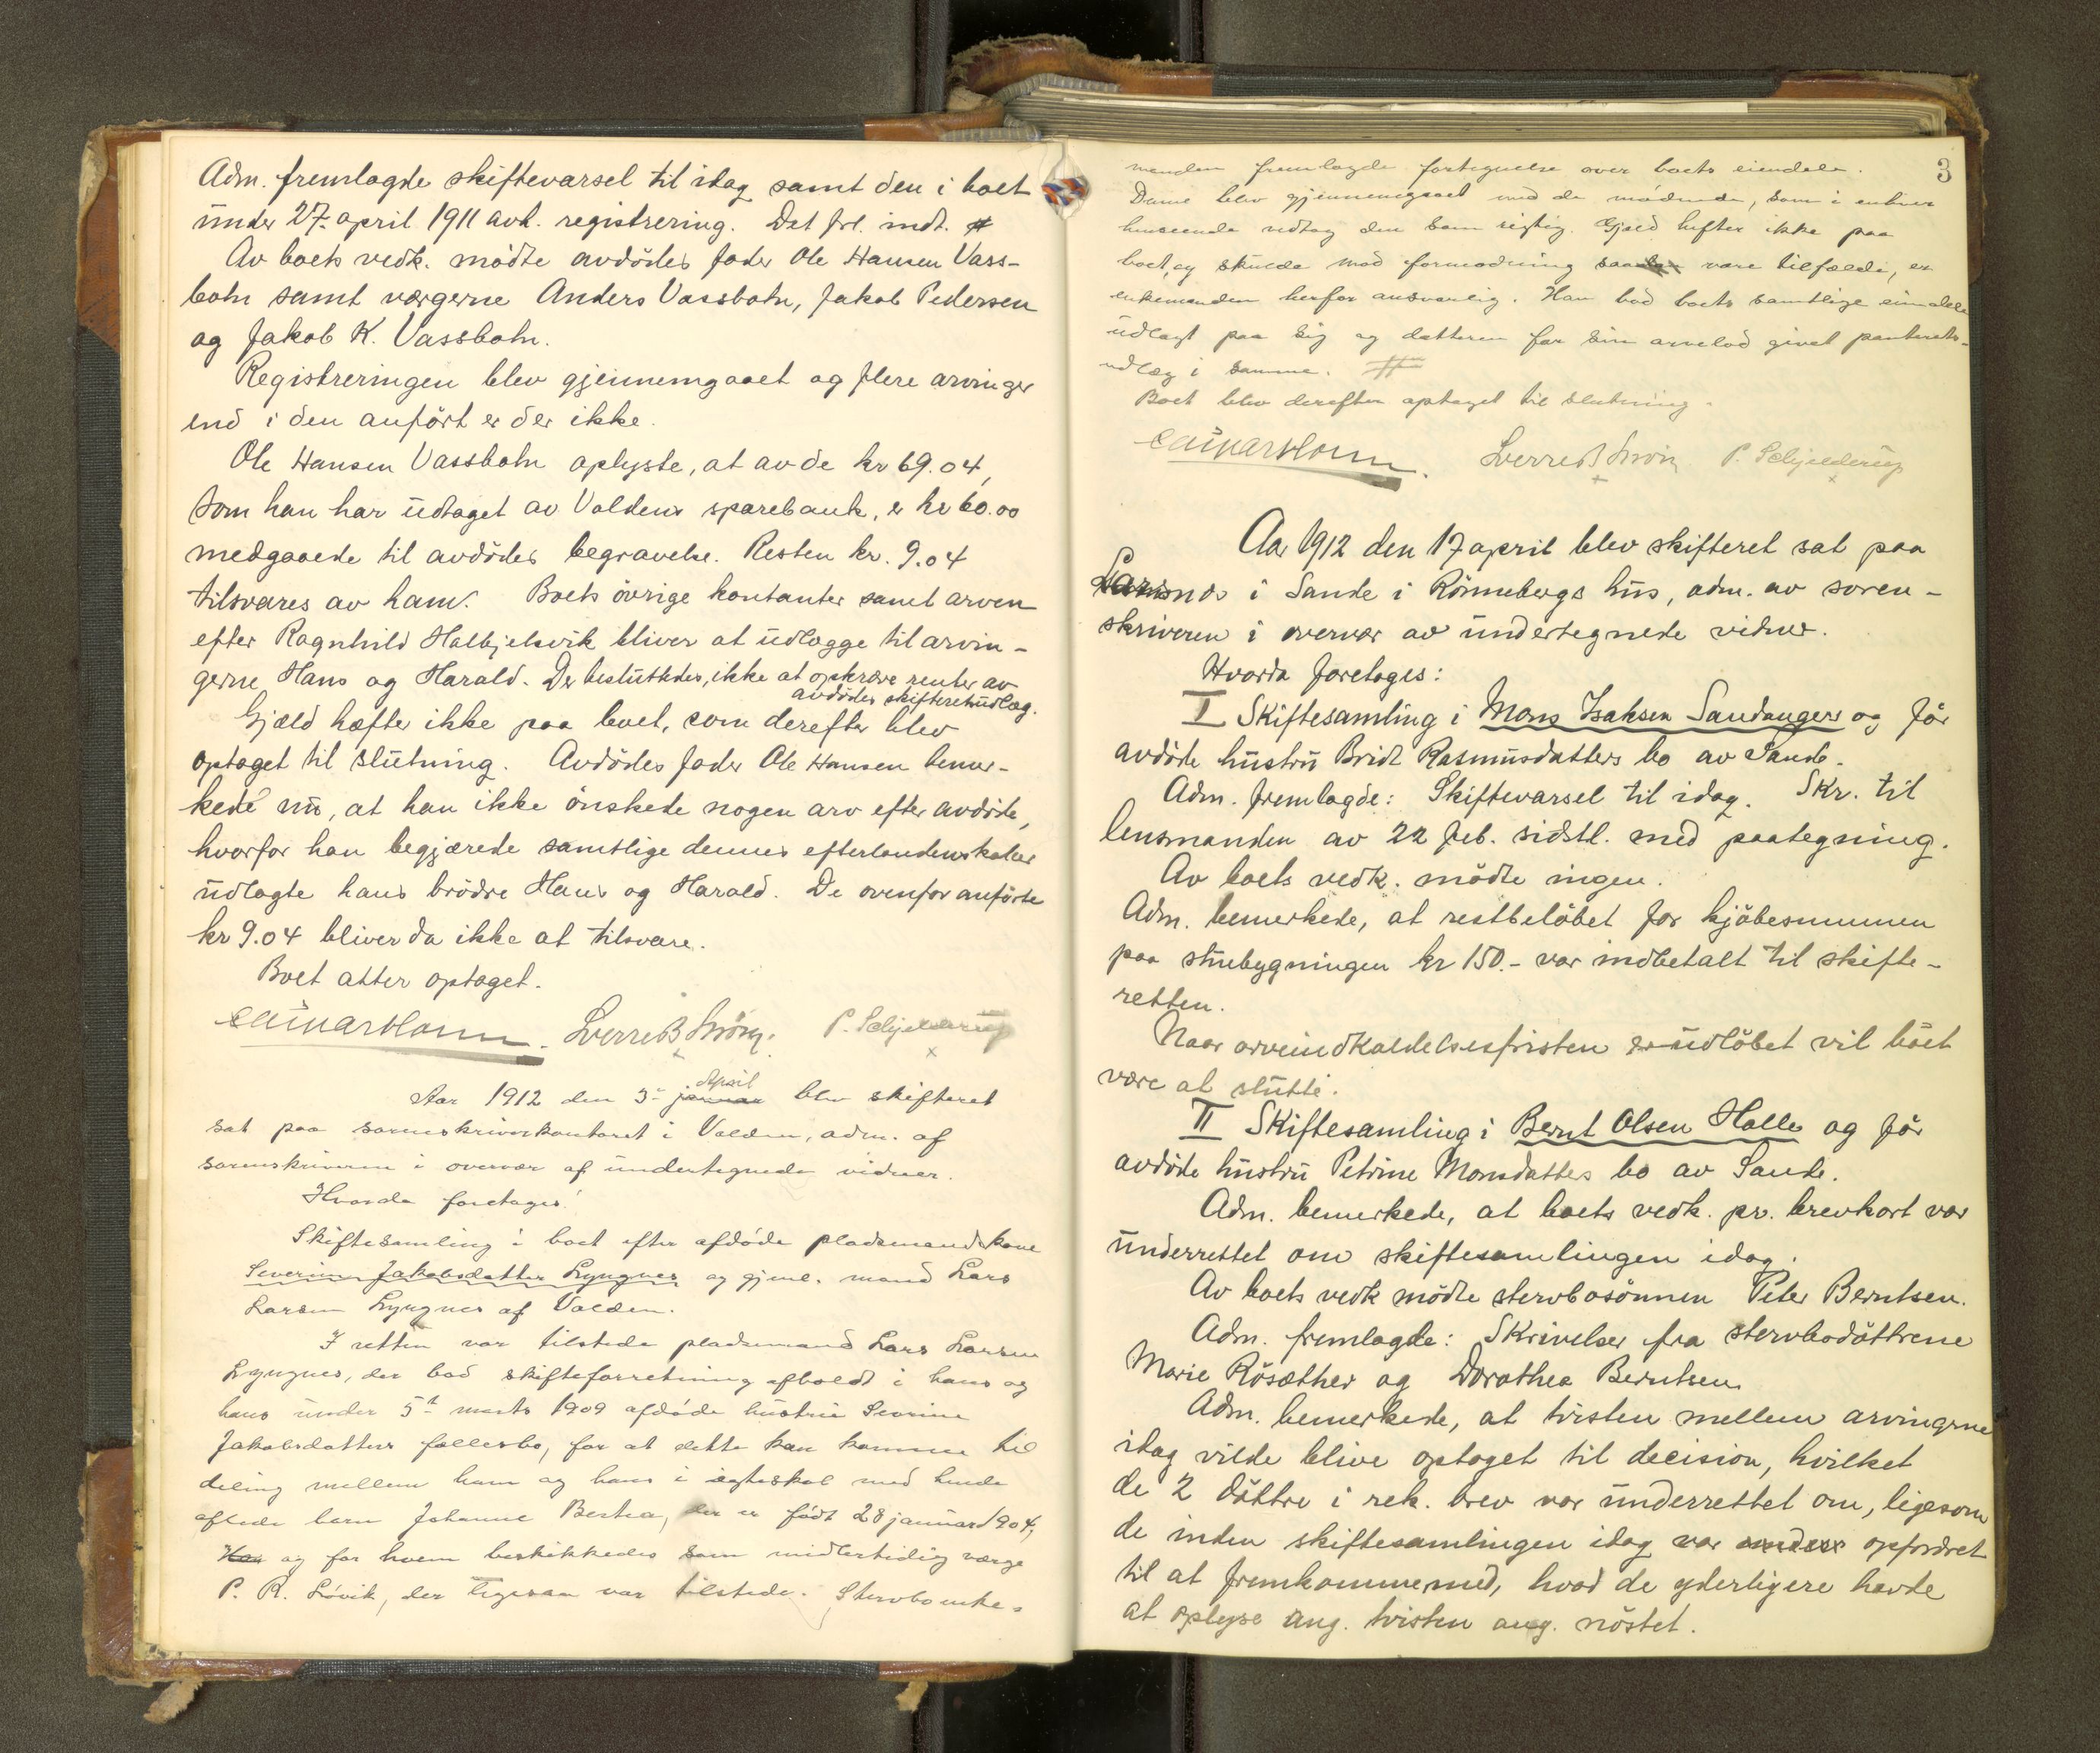 Adm. fremlagde skiftevarsel til idag samt den i boet
under 27. april 1911 avh. registrering. Det frl. indt.
Av boets vedk. mødte avdødes fader Ole Hansen Vass-
botn samt værgerne Anders Vassbotn, Jakob Pedersen
og Jakob K. Vassbotn.
Registreringen blev gjennemgaaet og flere arvinger
end i den anført er der ikke.
Ole Hansen Vassbotn oplyste, at av de kr 69.04,
som han har udtaget av Voldens sparebank, er kr 60.00
medgaaede til avdødes begravelse. Resten kr. 9.04
tilsvares av ham. Boets øvrige kontanter samt arven
efter Ragnhild Halkjelsvik bliver at udlægge til arvin-
gerne Hans og Harald. Der besluttedes, ikke at opkræve renter av
avdødes skifteretsudlæg.
Gjæld hæfter ikke paa boet, som derefter blev
optaget til slutning. Avdødes fader Ole Hansen bemær-
kede nu, at han ikke ønskede nogen arv efter avdøde,
hvorfor han begjærede samtlige dennes efterladenskaber
udlagte hans brødre Hans og Harald. De ovenfor anførte
kr 9.04 bliver da ikke at tilsvare.
Boet atter optaget.
Sverre B Strøm. P. Schjelderup
Aar 1912 den 3- januar April blev skifteret
sat paa sorenskriverkontoret i Volden, adm. af
sorenskriveren i overvær af undertegnede vidner.
Hvorda foretages:
Skiftesamling i boet efter afdøde pladsmandskone
Severine Jakobsdatter Lyngnes og gjenl. mand Lars
Larsen Lyngnes af Volden.
I retten var tilstede pladsmand Lars Larsen
Lyngnes, der bad skifteforretning afholdt i hans og
hans under 5t marts 1909 afdøde hustru Severine
Jakobsdatters fællesbo, for at dette kan komme til
deling mellem ham og hans i ægteskab med hende
aflede barn Johanne Bertea, der er født 28 januar 1904,
Han og for hvem beskikkedes som midlertidig værge
P. R. Løvik, der ligesaa var tilstede. Stervboenke-
3
manden fremlagde fortegnelse over boets eiendele.
Denne blev gjennemgaaet med de mødende, som i enhver
henseende vedtog den som rigtig. Gjæld hefter ikke paa
boet, og skulde mod formodning saa være tilfælde, er
enkemanden herfor ansvarlig. Han bad boets samtlige eiendele
udlagt paa sig og datteren for sin arvelod givet panterets-
udlæg i samme.
Boet blev derefter optaget til slutning.
Sverre B Strøm P. Schjelderup
Aar 1912 den 17 april blev skifteret sat paa
Larsnes i Sande i Rønnebergs hus, adm. av soren-
skriveren i overvær av undertegnede vidner.
Hvorda foretages:
I Skiftesamling i Mons Isaksen Sandangers og før
avdøde hustru Bridt Rasmusdatters bo av Sande.
Adm. fremlagde: Skiftevarsel til idag. Skr. til
lensmanden av 22 feb. sidstl. med paategning.
Av boets vedk. mødte ingen.
Adm. bemerkede, at restbeløbet for kjøbesummen
paa stuebygningen kr 150.- var indbetalt til skifte-
retten.
Naar arveindkaldelsesfristen er udløbet vil boet
være at slutte.
II Skiftesamling i Bernt Olsen Halle og før
avdøde hustru Petrine Monsdatters bo av Sande.
Adm. bemerkede, at boets vedk. pr. brevkort var
underrettet om skiftesamlingen idag.
Av boets vedk mødte stervbosønnen Peter Berntsen.
Adm. fremlagde: Skrivelser fra stervbodøttrene
Marie Røsæther og Dorothea Berntsen
Adm. bemerkede, at tvisten mellem arvingerne
idag vilde blive optaget til decision, hvilket
de 2 døttre i rek. brev var underrettet om, ligesom
de inden skiftesamlingen idag var opfordret
til at fremkomme med, hvad de yderligere havde
at oplyse ang. tvisten ang. nøstet.